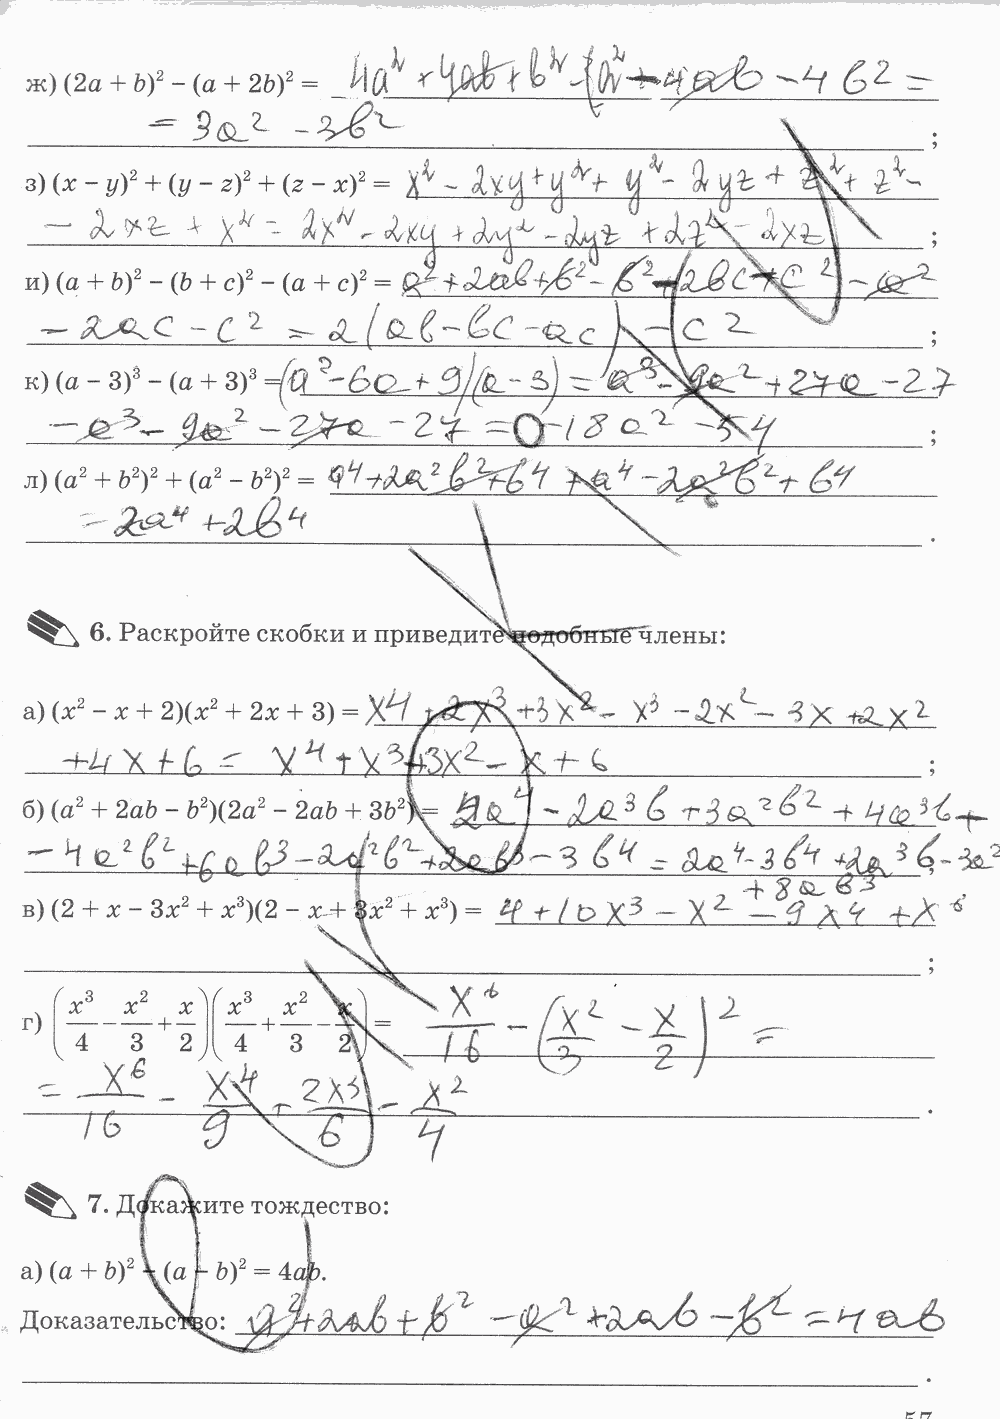 ж) (2a + b)² − (a + 2b)² = 4a² + 4ab + b² − (a² − 4ab − 4b² =
= 3a² − 3b² ;
з) (x − y)² + (y − z)² + (z − x)² = x² − 2xy + y² + y² − 2yz + z² + z² −
− 2xz + x² = 2x² − 2xy + 2y² − 2yz + 2z² − 2xz ;
и) (a + b)² − (b + c)² − (a + c)² = a² + 2ab + b² − b² − 2bc − c² − a²
− 2ac − c² = 2(ab − bc − ac) − c² ;
к) (a − 3)³ − (a + 3)³ = (a² − 6a + 9)(a − 3) = a³ − 9a² + 27a − 27
− a³ − 9a² − 27a − 27 = 0 − 18a² − 54 ;
л) (a² + b²)² + (a² − b²)² = a⁴ + 2a²b² + b⁴ + a⁴ − 2a²b² + b⁴
= 2a⁴ + 2b⁴ .
6. Раскройте скобки и приведите подобные члены:
а) (x² − x + 2)(x² + 2x + 3) = x⁴ + 2x³ + 3x² − x³ − 2x² − 3x + 2x²
+ 4x + 6 = x⁴ + x³ + 3x² − x + 6 ;
б) (a² + 2ab − b²)(2a² − 2ab + 3b²) = 2a⁴ − 2a³b + 3a²b² + 4a³b +
− 4a²b² + 6ab³ − 2a²b² + 2ab³ − 3b⁴ = 2a⁴ − 3b⁴ + 2a³b − 3a²
+ 8ab³ ;
в) (2 + x − 3x² + x³)(2 − x + 3x² + x³) = 4 + 10x³ − x² − 9x⁴ + x⁶
;
г) (x³/4 − x²/3 + x/2)(x³/4 + x²/3 − x/2) = x⁶/16 − (x²/3 − x/2)² =
= x⁶/16 − x⁴/9 + 2x³/6 − x²/4 .
7. Докажите тождество:
а) (a + b)² − (a − b)² = 4ab.
Доказательство: a² + 2ab + b² − a² + 2ab − b² = 4ab
.
57